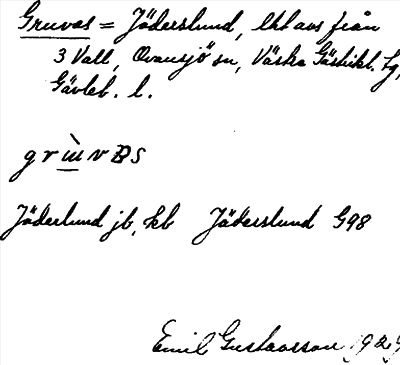 Gruvas = Jäderslund, lht avs från
3 Vall, Ovansjö sn, Västra Gästrikl. tg,
Gävleb. l.
Jäderlund jb, kb Jäderslund G98
Emil Gustavsson